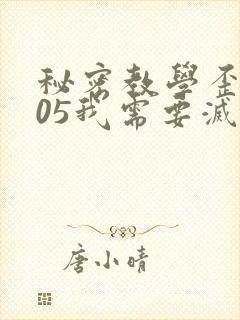 秘密教學歪
05我需要滅
唐小晴